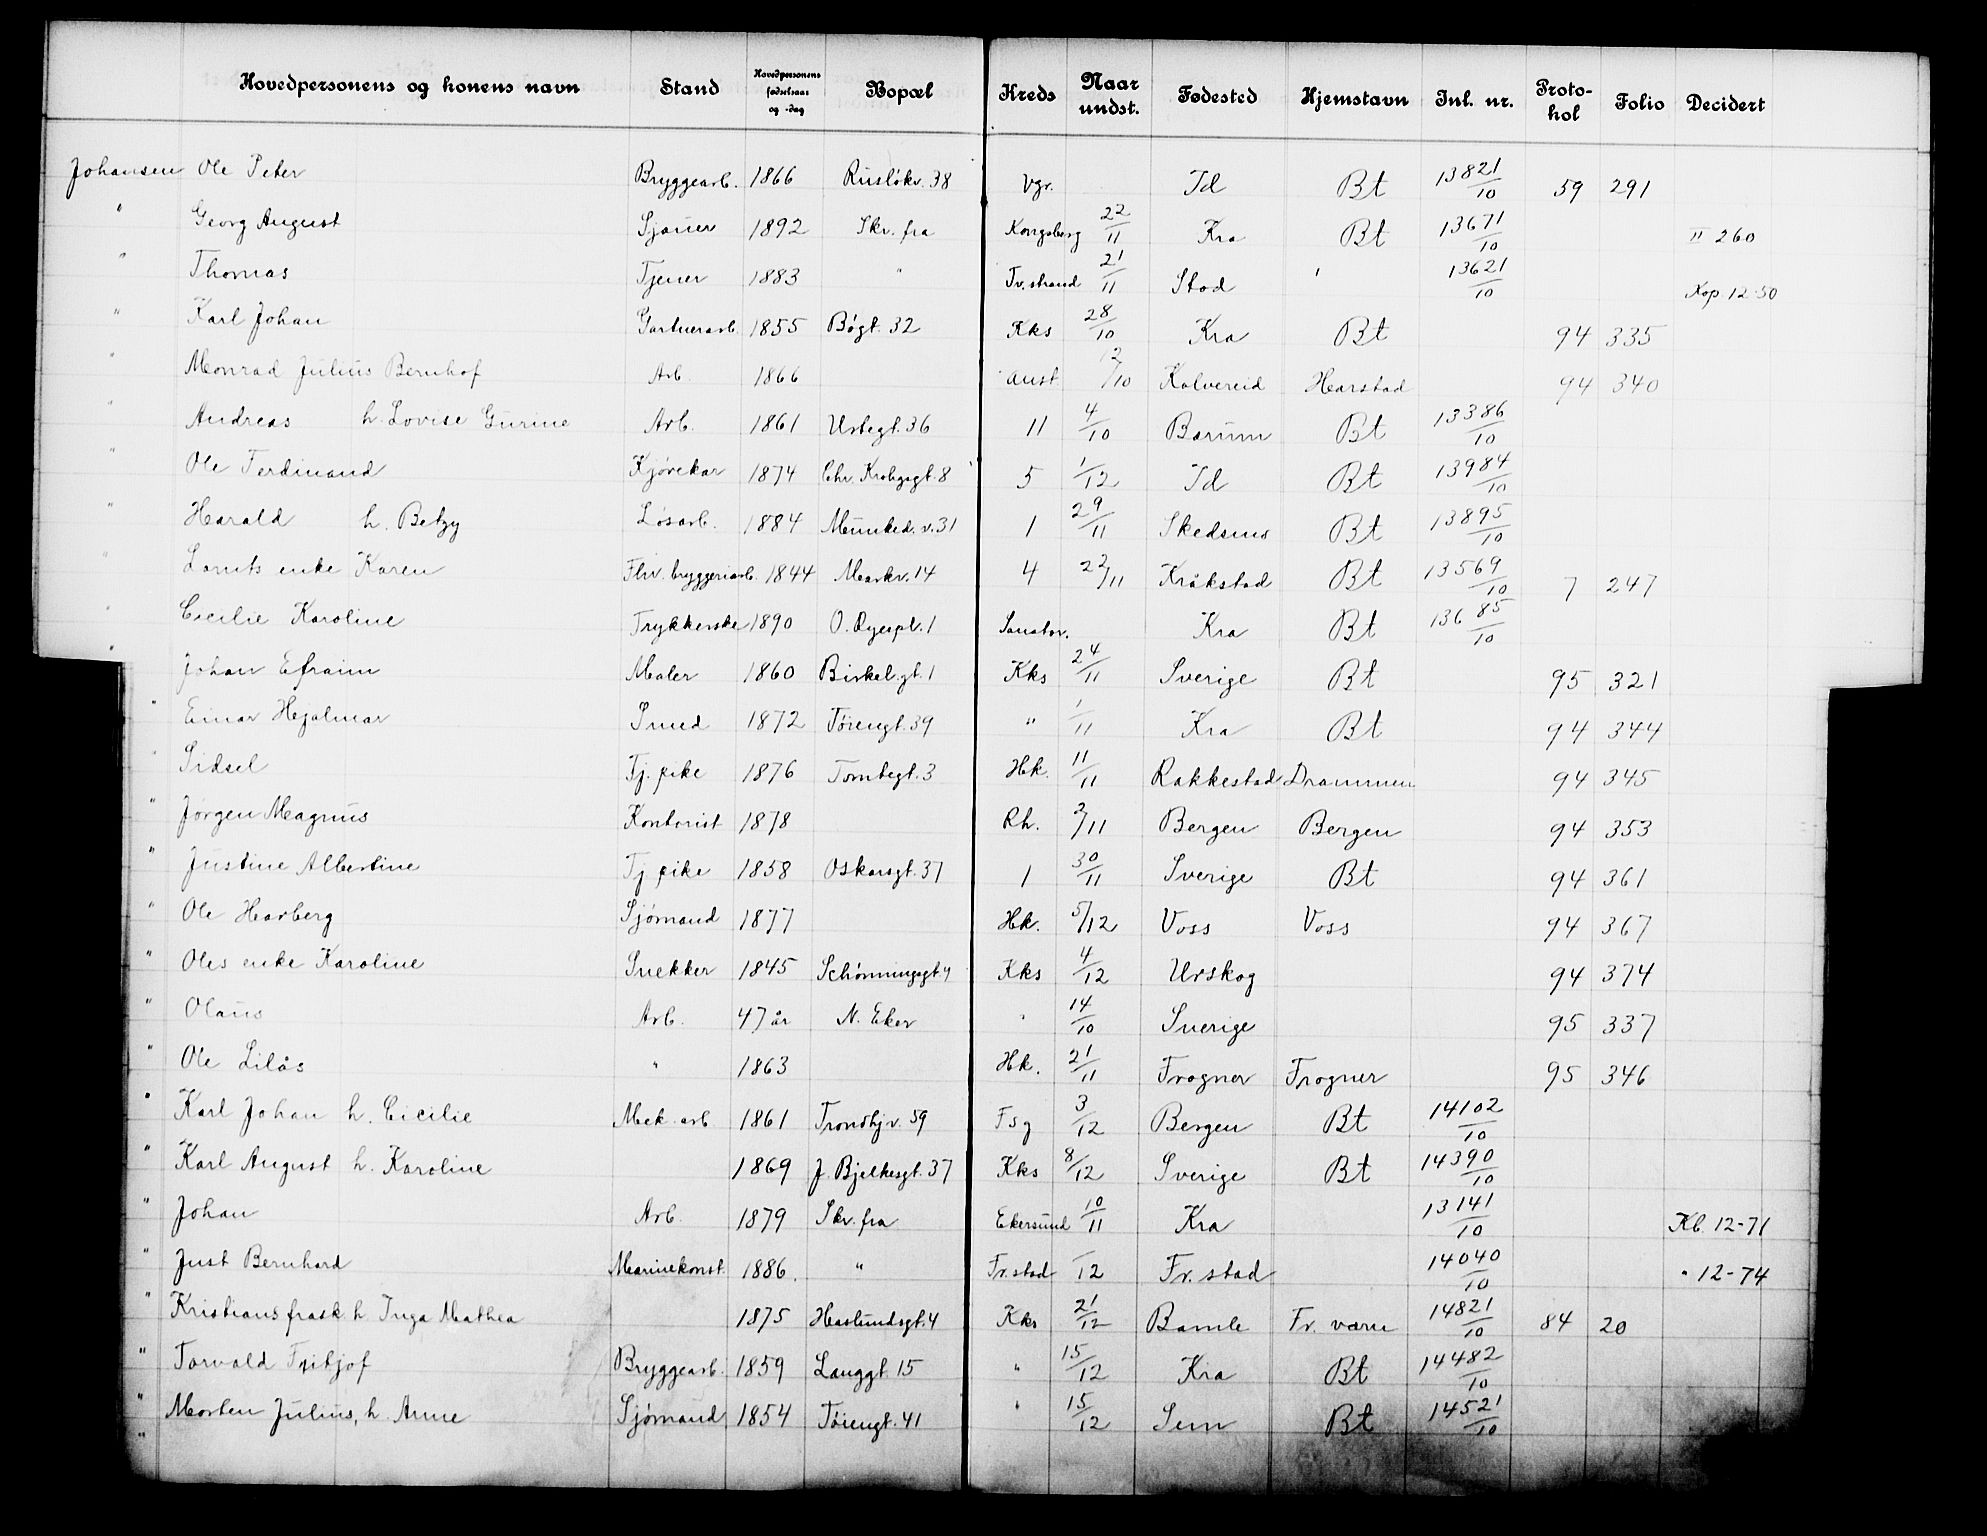 Hovedpersonens og konens navn Stand Hovedpersonens fødselsaar og -dag Bopæl Kreds Naar undst. Fødested Hjemstavn Inl. nr. Protokol Folio Decidert
Johansen Ole Peter Bryggearb. 1866 Rusløkv. 38 Vgr. Id Bt 13821/10 59 291
" Georg August Sjauer 1892 Skr. fra Kongsberg 22/11 Kra Bt 13671/10 II 260
" Thomas Tjener 1883 " Tv.strand 21/11 Stod ' 13621/10 Kop. 12-50
" Karl Johan Gartnerarb. 1855 Bøgt. 32 Kks 28/10 Kra Bt 94 335
" Monrad Julius Bernhof Arb. 1866 aust. /10 Kolvereid Harstad 94 340
" Andreas h. Lovise Gurine Arb. 1861 Urtegt. 36 11 4/10 Barum Bt 13386/10
" Ole Ferdinand Kjørekar 1874 Chr. Krohgsgt. 8 5 1/12 Id Bt 13984/10
" Harald h. Betzy Løsarb. 1884 Munked. v. 31 1 29/11 Skedsmo Bt 13895/10
" enke Karen Fhv. bryggeriarb. 1844 Markv. 14 4 22/11 Kråkstad Bt 13569/10 7 247
" Cecilie Karoline Trykkerske 1890 O. Ryespl. 1 Sanator. Kra Bt 13685/10
" Johan Efraim Maler 1860 Birkel.gt. 1 Kks 24/11 Sverige Bt 95 321
" Einar Hejalmar Smed 1872 Tøiengt. 39 " 1/11 Kra Bt 94 344
" Sidsel Tj. pike 1876 Tomtegt. 3 Hk. 11/11 Rakkestad Drammen 94 345
" Jørgen Magnus Kontorist 1878 Rh. 3/11 Bergen Bergen 94 353
" Justine Albertine Tj. pike 1858 Oskarsgt. 37 1 30/11 Sverige Bt 94 361
" Ole Harberg Sjømand 1877 Hk. 5/12 Voss Voss 94 367
" Oles enke Karoline Snekker 1845 Schønningsgt. 4 Kks 4/12 Urskog 94 374
" Olaus Arb. 47 år N. Eker " 14/10 Sverige 95 337
" Ole Lilås " 1863 Hk. 21/11 Frogner Frogner 95 346
" Karl Johan h. Cicilie Mek. arb. 1861 Trondhj.v. 59 Fsg 3/12 Bergen Bt 14102/10
" Karl August h. Karoline 1869 J. Bjelkesgt. 37 Kks 8/12 Sverige Bt 14390/10
" Johan Arb. 1879 Skr. fra Ekersund 10/11 Kra 13141/10 Kb. 12-71
" Just Bernhard Marinekonst. 1886. " Fr.stad 12 Fr.stad 14040/10 " 12-74
" Kristians frask. h. Inga Mathea 1875 Haslundsgt. 4 Kks 21/12 Bamle Fr. værn 14821/10 84 20
" Torvald Fritjof Bryggearb. 1859 Langgt. 15 " 15/12 Kra Bt 14482/10
" Morten Julius, h. Anne Sjømand 1854 Tøiengt. 41 " 15/12 Sem Bt 14521/10
"